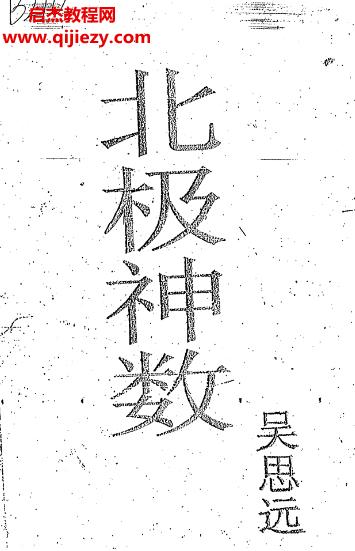 启杰教程网
www.qijiezy.com
北极神数
吴思远